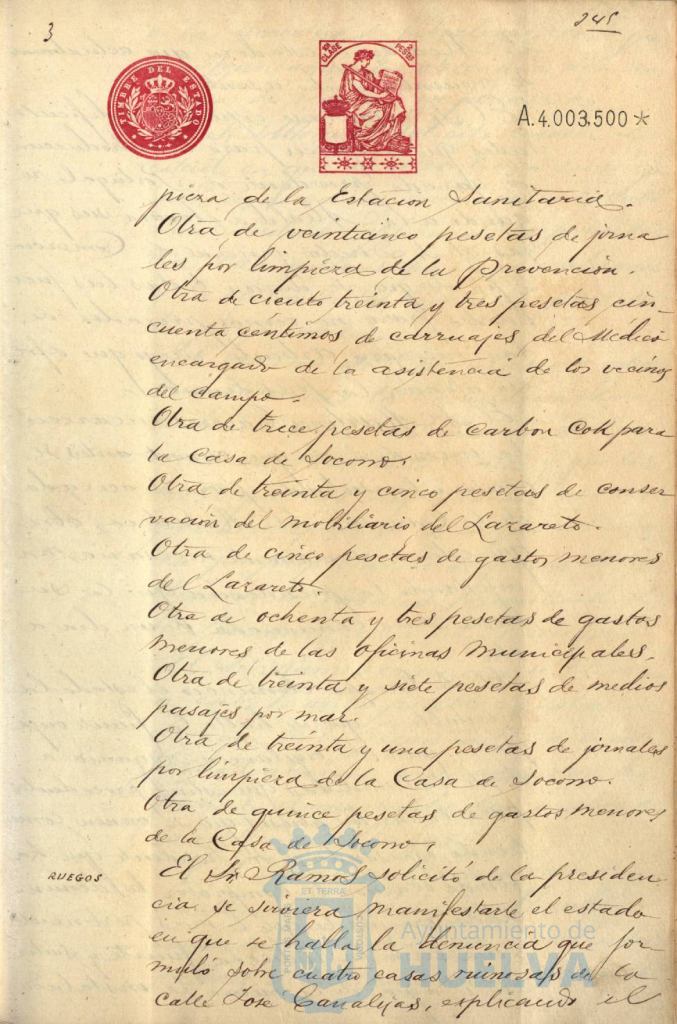 3
245
TIMBRE DEL ESTADO
CLASE PESETAS
A.4.003,500*
pieza de la Estacion Sanitaria.
Otra de veinticinco pesetas de jorna
les por limpieza de la Prevención.
Otra de ciento treinta y tres pesetas cin-
cuenta céntimos de carruajes del Médico
encargado de la asistencia de los vecinos
del campo.
Otra de trece pesetas de carbon Cok para
la Casa de Socorro.
Otra de treinta y cinco pesetas de conser
vación del mobiliario del Lazareto.
Otra de cinco pesetas de gastos menores
del Lazareto.
Otra de ochenta y tres pesetas de gastos
menores de las oficinas municipales.
Otra de treinta y siete pesetas de medios
pasajes por mar.
Otra de treinta y una pesetas de jornales
por limpieza de la Casa de Socorro.
Otra de quince pesetas de gastos menores
de la Casa de Socorro.
RUEGOS
El Sr. Ramos solicitó de la presiden
cia se sirviera manifestarle el estado
en que se halla la denuncia que for-
muló sobre cuatro casas ruinosas de la
calle José Canalejas, explicando el
Ayuntamiento de
HUELVA